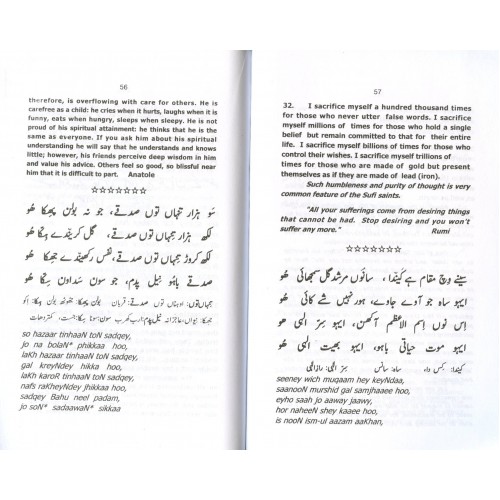 56
therefore, is overflowing with care for others. He is
carefree as a child: he cries when it hurts, laughs when it is
funny, eats when hungry, sleeps when sleepy. He is not
proud of his spiritual attainment: he thinks that he is the
same as everyone. If you ask him about his spiritual
understanding he will say that he understands and knows
little; however, his friends perceive deep wisdom in him
and value his advice. Others feel so good, so blissful near
him that it is difficult to part. Anatole
☆☆☆☆☆☆☆
سَو ہزار تنہاں توں صدقے، جو نہ بولن پھِکا ھُو
لکھ کروڑ تنہاں توں صدقے، نفس رکھیندے جھِکا ھُو
صدقے باہُو نیل پدم، جو سون سداون سِکا ھُو
so hazaar tinhaaN toN sadqey,
jo na bolaN* phikkaa hoo,
lakh hazaar tinhaaN toN sadqey,
gal kreyNdey hikka hoo,
lakh karoR tinhaaN toN sadqey,
nafs raKheyNdey jhikka hoo,
sadqey Bahu neel padam,
jo soN* sadaawaN* sikkaa
57
32. I sacrifice myself a hundred thousand times
for those who never utter false words. I sacrifice
myself millions of times for those who hold a single
belief but remain committed to that for their entire
life. I sacrifice myself billions of times for those who
control their wishes. I sacrifice myself trillions of
times for those who are made of gold but present
themselves as if they are made of lead (iron).
Such humbleness and purity of thought is very
common feature of the Sufi saints.
"All your sufferings come from desiring things
that cannot be had. Stop desiring and you won't
suffer any more." Rumi
☆☆☆☆☆☆☆
سینے وچ مقام ہے کیندا، سانوں مرشد گل سمجھائی ھُو
ایہو ساہ جو آوے جاوے، ہور نہیں شے کائی ھُو
اس نوں اِسم الاعظم آکھن، ایہو سِرّ الٰہی ھُو
ایہو موت حیاتی باہو، ایہو بھیت الٰہی ھُو
seeney wich muqaam hey keyNdaa,
saanooN murshid gal samjhaaee hoo,
eyho saah jo aaway jaawy,
hor naheeN shey kaaee hoo,
is nooN ism-ul aazam aaKhan,